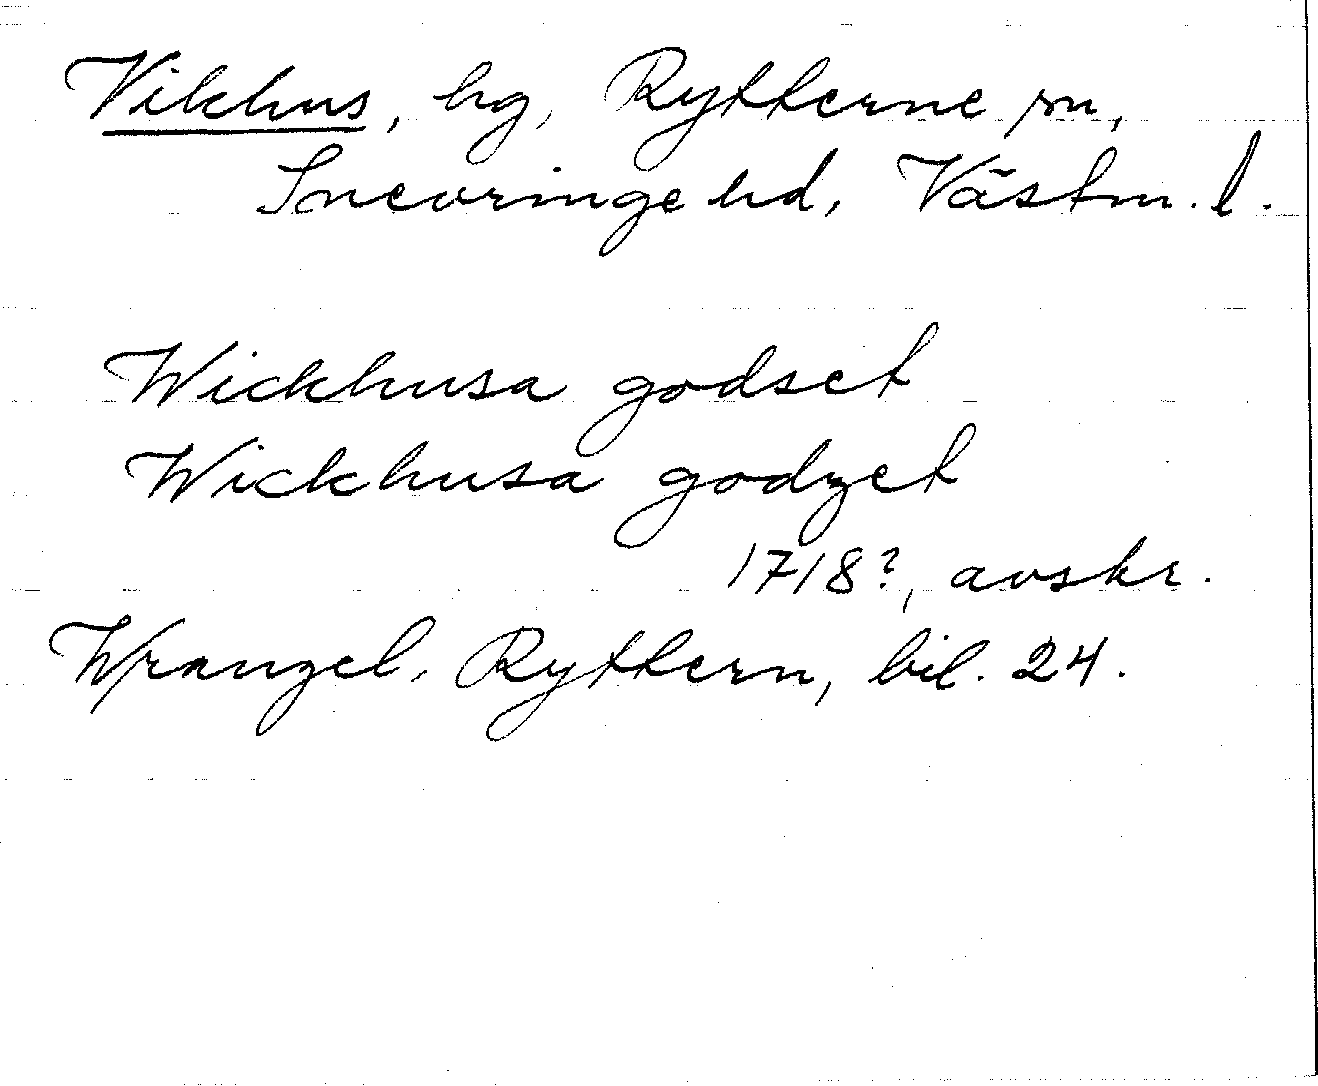 Vikhus, hg, Rytterne sn,
Snevringe hd, Västm. l.
Wickhusa godset
Wickhusa godzet
1718?, avskr.
Wrangel, Ryttern, bil. 24.